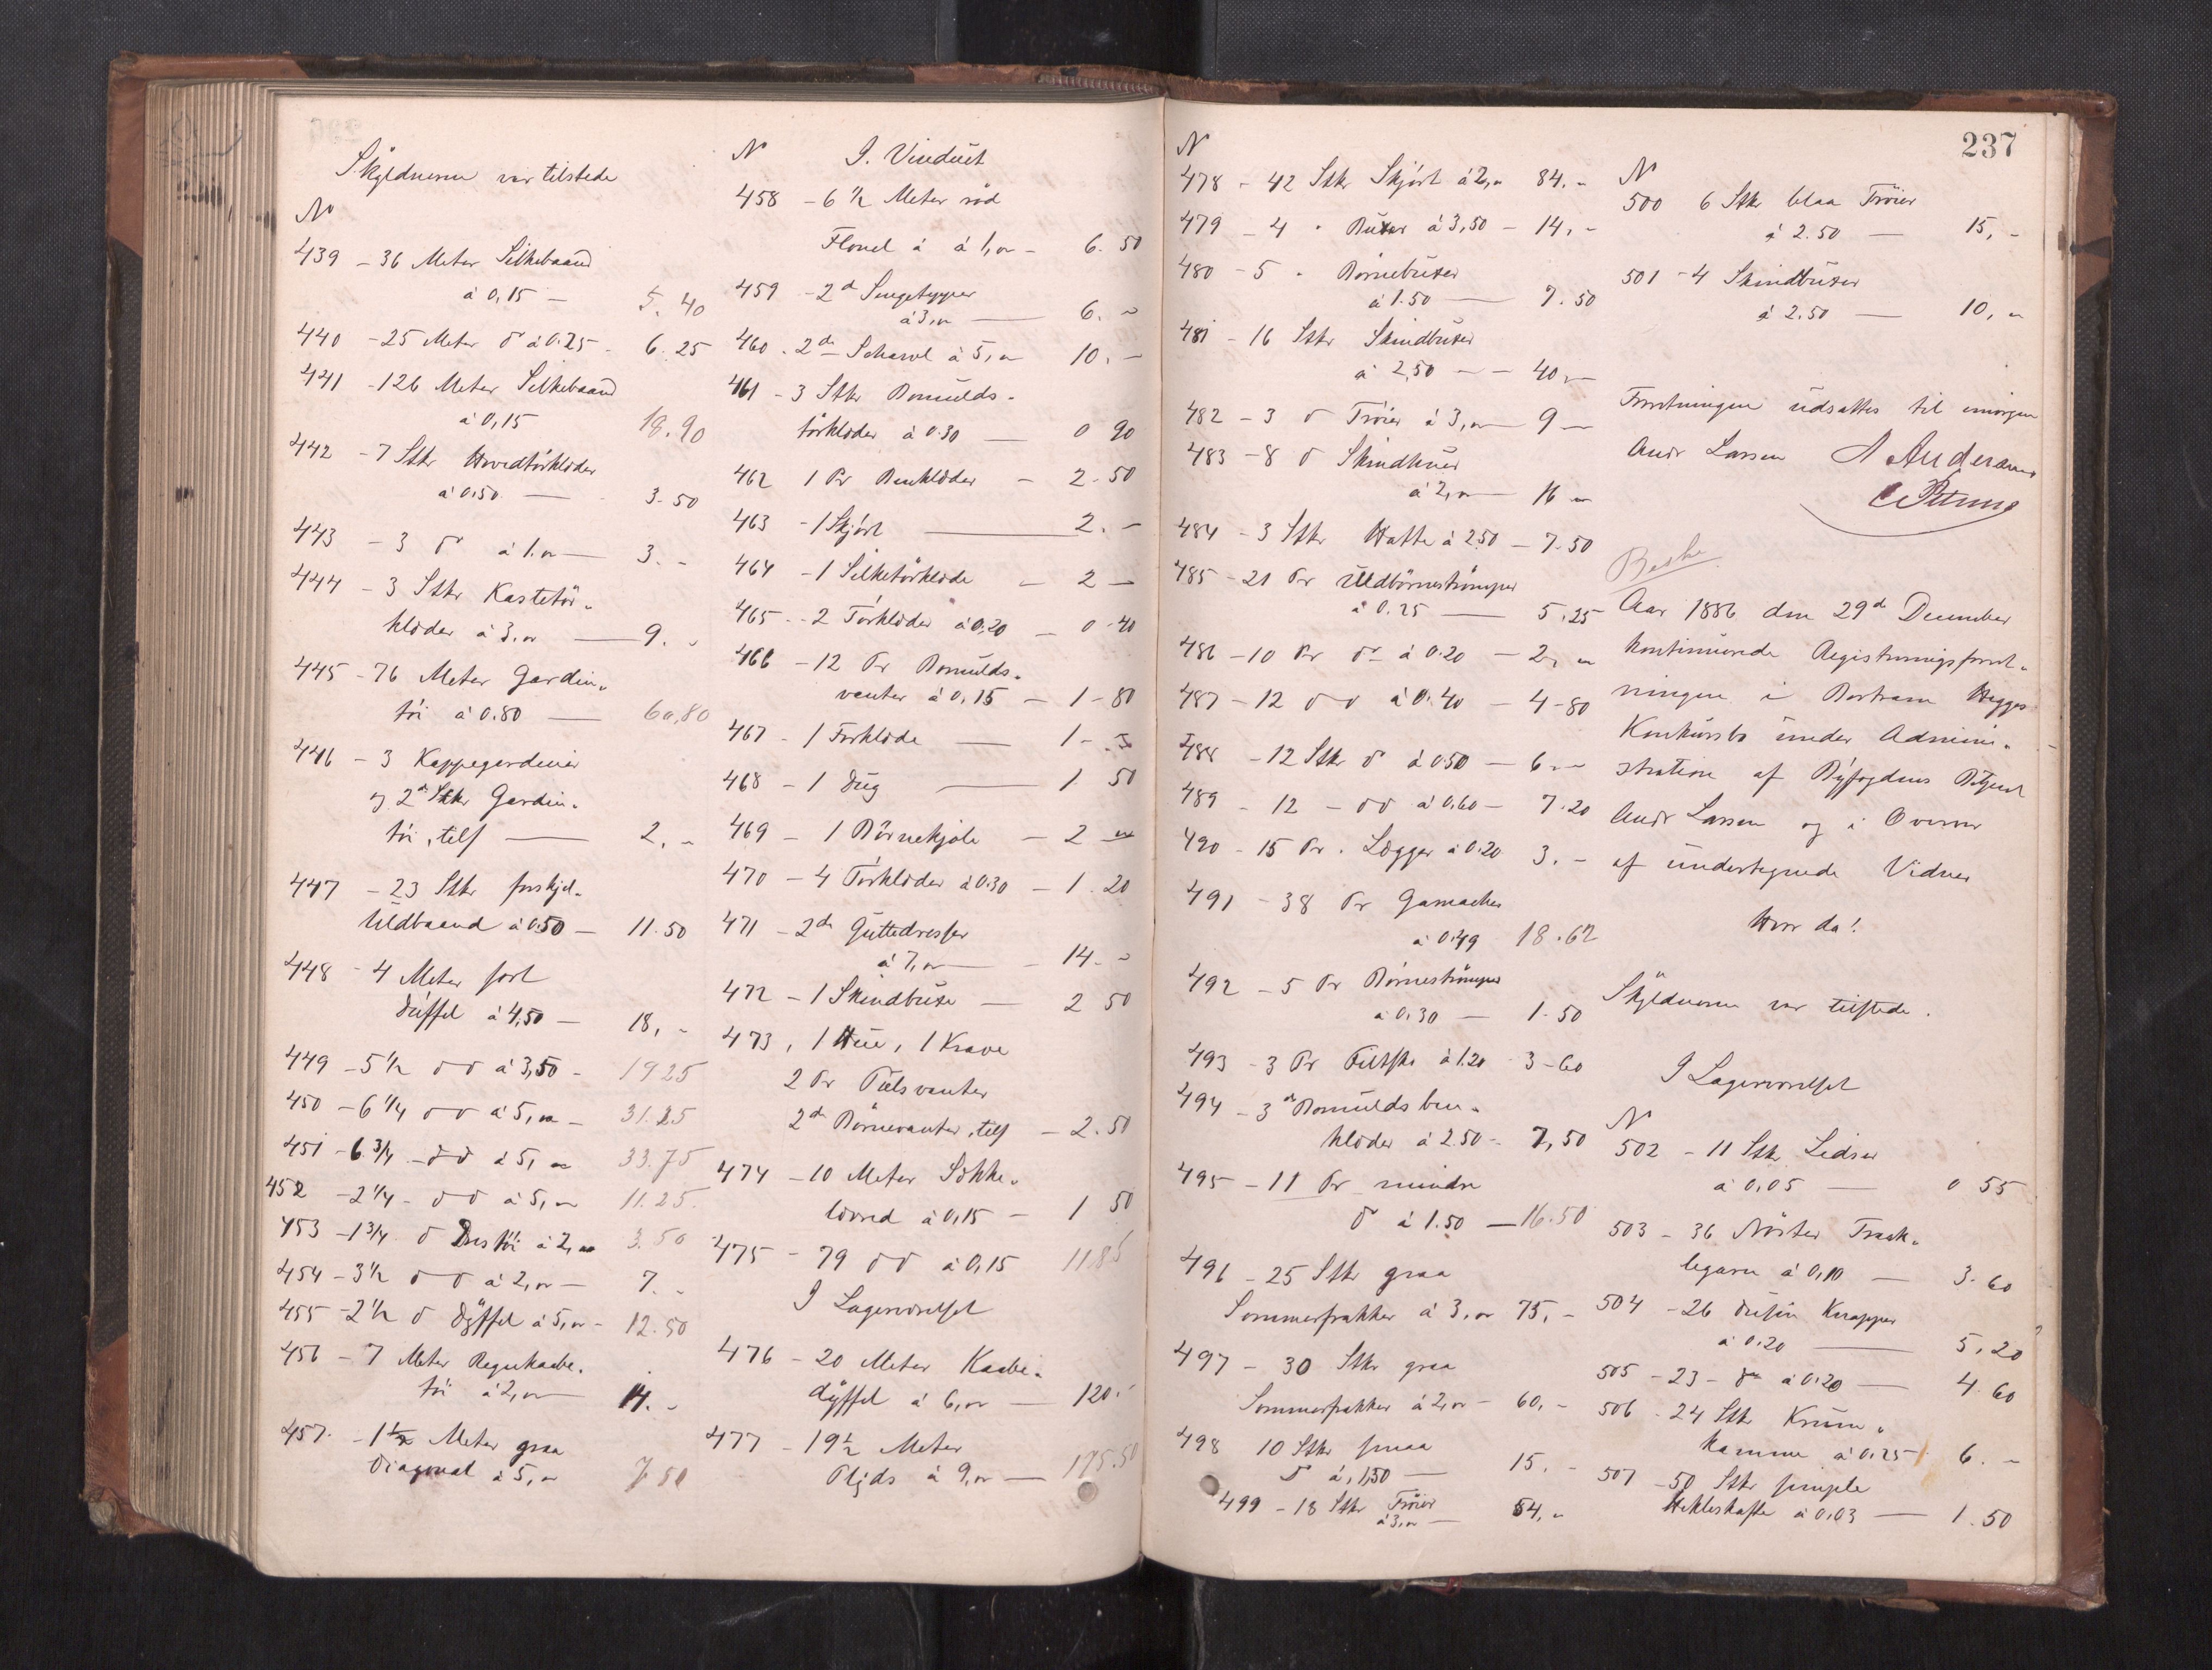 Skyldneren var tilstede
No
439 - 36 Meter Silkebaand
à 0,15 - 5.40
440 - 25 Meter do à 0.25 - 6.25
441 - 126 Meter Silkebaand
à 0,15 18.90
442 - 7 Stkr Hovedtörklæder
à 0.50 - 3.50
443 - 3 do à 1.- 3.-
444 - 3 Stkr Kastetör-
klæder à 3.- 9.-
445 - 76 Meter Gardin-
töi à 0.80 - 60,80
446 - 3 Kappegardiner
og 2 Stkr Gardin-
töi, tils - 2.-
447 - 23 Stkr forskjel.
Uldbaand à 0.50 - 11.50
448 - 4 Meter sort
Düffel à 4,50 - 18,-
449 - 5 1/2 do do à 3,50 - 19 25
450 - 6 1/4 do do à 5,- - 31.25
451 - 6 3/4 - do do à 5,- 33.75
452 - 2 1/4 - do do à 5,- 11.25.
453 - 1 3/4 do töi à 2,- 3.50
454 - 3 1/2 do do à 2,- - 7.-
455 - 2 1/2 do Dyffel à 5,- - 12.50
456 - 7 Meter Regnkaabe-
töi à 2,- 14.-
457. - 1 1/2 Meter graa
Diagonal à 5,- 7.50
No I. Vinduet
458 - 6 1/2 Meter röd
Flonel à à 1,- - 6.50
459 - 2 de Sengetepper
à 3,- - 6.-
460 - 2 de Schawl à 5,- 10.-
461 - 3 Stkr Bomulds-
törklæder à 0.30 - 0 90
462 1 Pr Benklæder - 2.50
463 - 1 Skjört - 2.-
464 - 1 Silketörklæde - 2 -
465 - 2 Törklæder à 0,20 - 0.40
466 - 12 Pr Bomulds-
vanter à 0,15 - 1-80
467 - 1 Forklæde - 1-
468 - 1 Dug - 1 50
469 - 1 Börnekjole - 2 -
470 - 4 Törklæder à 0.30 - 1.20
471 - 2 de Guttedresser
à 7,- - 14.-
472 - 1 Skindbuxe - 2 50
473, 1 Hue, 1 Krave
2 Pr Pulsvanter
2 de Börnevanter, tils - 2.50
474 - 10 Meter Sokke-
lærred à 0,15 - 1 50
475 - 79 do do à 0,15 11 85
I Lagerværelset
476 - 20 Meter Kaabe-
dyffel à 6,- - 120.-
477 - 19 1/2 Meter
Plyds à 9,- - 175.50
237
No
478 - 42 Stkr Skjört à 2,- 84.-
479 - 4 " Buxer à 3,50 - 14,-
480 - 5 " Börnebuxer
à 1.50 - 7.50
481 - 16 Stkr Skindbuxer
à 2,50 - 40,-
482 - 3 do Tröier à 3,- 9 -
483 - 8 do Skindhuer
à 2,- 16 -
484 - 3 Stkr Hatte à 2.50 - 7.50
485 - 21 Pr Uldbörneströmper
à 0.25 - 5.25
486 - 10 Pr do à 0.20 - 2,-
487 - 12 do do à 0.40 - 4-80
488 - 12 Stkr do à 0.50 - 6 -
489 - 12 - do do à 0,60 - 7.20
490 - 15 Pr. Lægger à 0.20 3.-
491 - 38 Pr Gamacher
à 0.49 18.62
492 - 5 Pr Börneströmper
à 0.30 - 1.50
493 - 3 Pr Filtsko à 1.20 3-60
494 - 3 de Bomulds ben-
klæder à 2.50 - 7,50
495 - 11 Pr mindre
do à 1.50 - 16.50
496 - 25 Stkr graa
Sommerfrakker à 3,- 75,-
497 - 30 Stkr graa
Sommerfrakker à 2,- - 60,-
498 10 Stkr smaa
do à 1,50 - 15.-
499 - 18 Stkr Tröier
à 3,- - 54,-
No
500 6 Stkr blaa Tröier
à 2.50 - 15,-
501 - 4 Skindbuxer
à 2.50 - 10,-
Forretningen udsattes til imorgen
Andr Larsen A Andersen
Aar 1886 den 29de December
kontinuerede Registreringsforret-
ningen i Bertram Hegges
Konkursbo under Admini-
stration af Byfogdens Betjent
Andr Larsen og i Overvær
af undertegnede Vidner
Hvor da!
Skyldneren var tilstede.
I Lagerværelset
No
502 - 11 Stkr Lidser
à 0,05 - 0 55
503 - 36 Nöster Traak-
legarn à 0,10 - 3.60
504 - 26 dusin Knapper
à 0.20 - 5,20
505 - 23 - do à 0.20 - 4.60
506 - 24 Stkr Krum-
kamme à 0.25 6.-
507 - 50 Stkr simple
Hekleskafte à 0,03 - 1.50